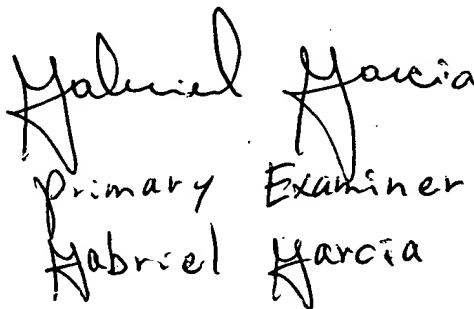 Gabriel Garcia
Primary Examiner
Gabriel Garcia